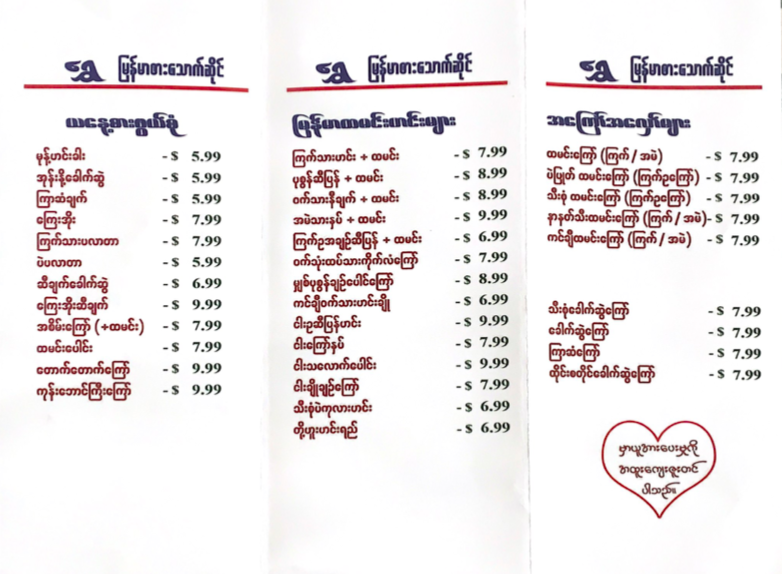 ရွှေ မြန်မာစားသောက်ဆိုင်
ယနေ့စားဖွယ်စုံ
မုန့်ဟင်းခါး - $ 5.99
အုန်းနို့ခေါက်ဆွဲ - $ 5.99
ကြာဆံချက် - $ 5.99
ကြေးအိုး - $ 7.99
ကြက်သားပလာတာ - $ 7.99
ပဲပလာတာ - $ 5.99
ဆီချက်ခေါက်ဆွဲ - $ 6.99
ကြေးအိုးဆီချက် - $ 9.99
အစိမ်းကြော် (+ထမင်း) - $ 7.99
ထမင်းပေါင်း - $ 7.99
တောက်တောက်ကြော် - $ 9.99
ကုန်းဘောင်ကြီးကြော် - $ 9.99
ရွှေ မြန်မာစားသောက်ဆိုင်
မြန်မာထမင်းဟင်းများ
ကြက်သားဟင်း + ထမင်း - $ 7.99
ပုစွန်ဆီပြန် + ထမင်း - $ 8.99
ဝက်သားနီချက် + ထမင်း - $ 8.99
အမဲသားနှပ် + ထမင်း - $ 9.99
ကြက်ဥအချဉ်ဆီပြန် + ထမင်း - $ 6.99
ဝက်သုံးထပ်သားကိုက်လံကြော် - $ 7.99
မျှစ်ပုစွန်ချဉ်ပေါင်ကြော် - $ 8.99
ကင်ချီဝက်သားဟင်းချို - $ 6.99
ငါးဥဆီပြန်ဟင်း - $ 9.99
ငါးကြော်နှပ် - $ 7.99
ငါးသလောက်ပေါင်း - $ 9.99
ငါးချိုချဉ်ကြော် - $ 7.99
သီးစုံပဲကုလားဟင်း - $ 6.99
တို့ဟူးဟင်းရည် - $ 6.99
ရွှေ မြန်မာစားသောက်ဆိုင်
အကြော်အလှော်များ
ထမင်းကြော် (ကြက် / အမဲ) - $ 7.99
ပဲပြုတ် ထမင်းကြော် (ကြက်ဥကြော်) - $ 7.99
သီးစုံ ထမင်းကြော် (ကြက်ဥကြော်) - $ 7.99
နာနတ်သီးထမင်းကြော် (ကြက် / အမဲ) - $ 7.99
ကင်ချီထမင်းကြော် (ကြက် / အမဲ) - $ 7.99
သီးစုံခေါက်ဆွဲကြော် - $ 7.99
ခေါက်ဆွဲကြော် - $ 7.99
ကြာဆံကြော် - $ 7.99
ထိုင်းစတိုင်ခေါက်ဆွဲကြော် - $ 7.99
မှာယူအားပေးမှုကို
အထူးကျေးဇူးတင်
ပါသည်။